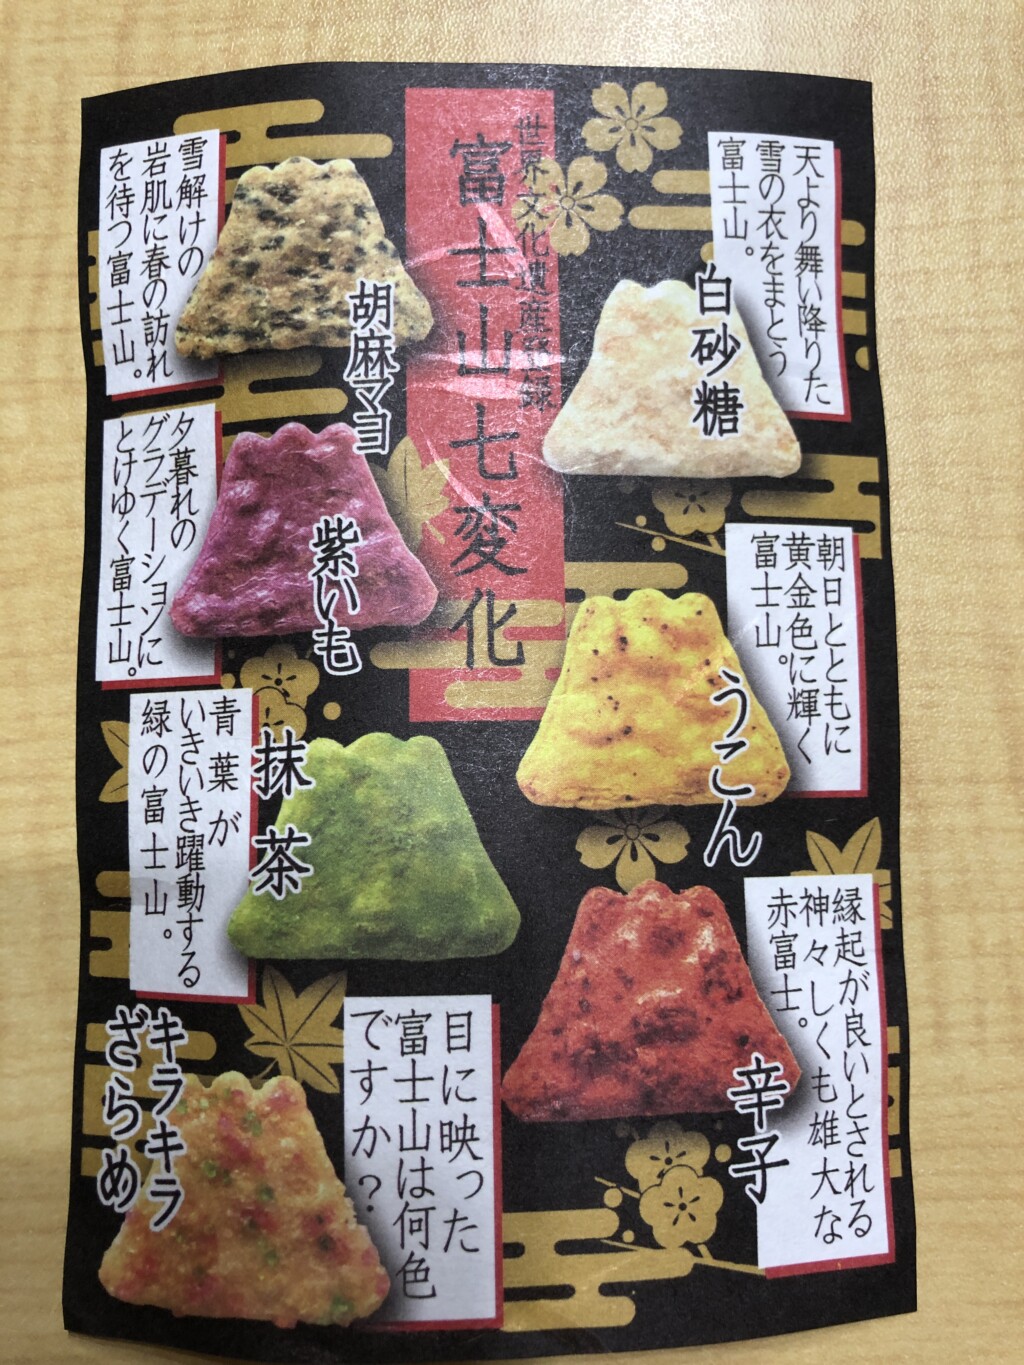 世界文化遺産登録
富士山七変化
天より舞い降りた
雪の衣をまとう
富士山。
白砂糖
朝日とともに
黄金色に輝く
富士山。
うこん
縁起が良いとされる
神々しくも雄大な
赤富士。
辛子
雪解けの
岩肌に春の訪れ
を待つ富士山。
胡麻マヨ
夕暮れの
グラデーションに
とけゆく富士山。
紫いも
青葉が
いきいき躍動する
緑の富士山。
抹茶
目に映った
富士山は何色
ですか?
キラキラ
ざらめ